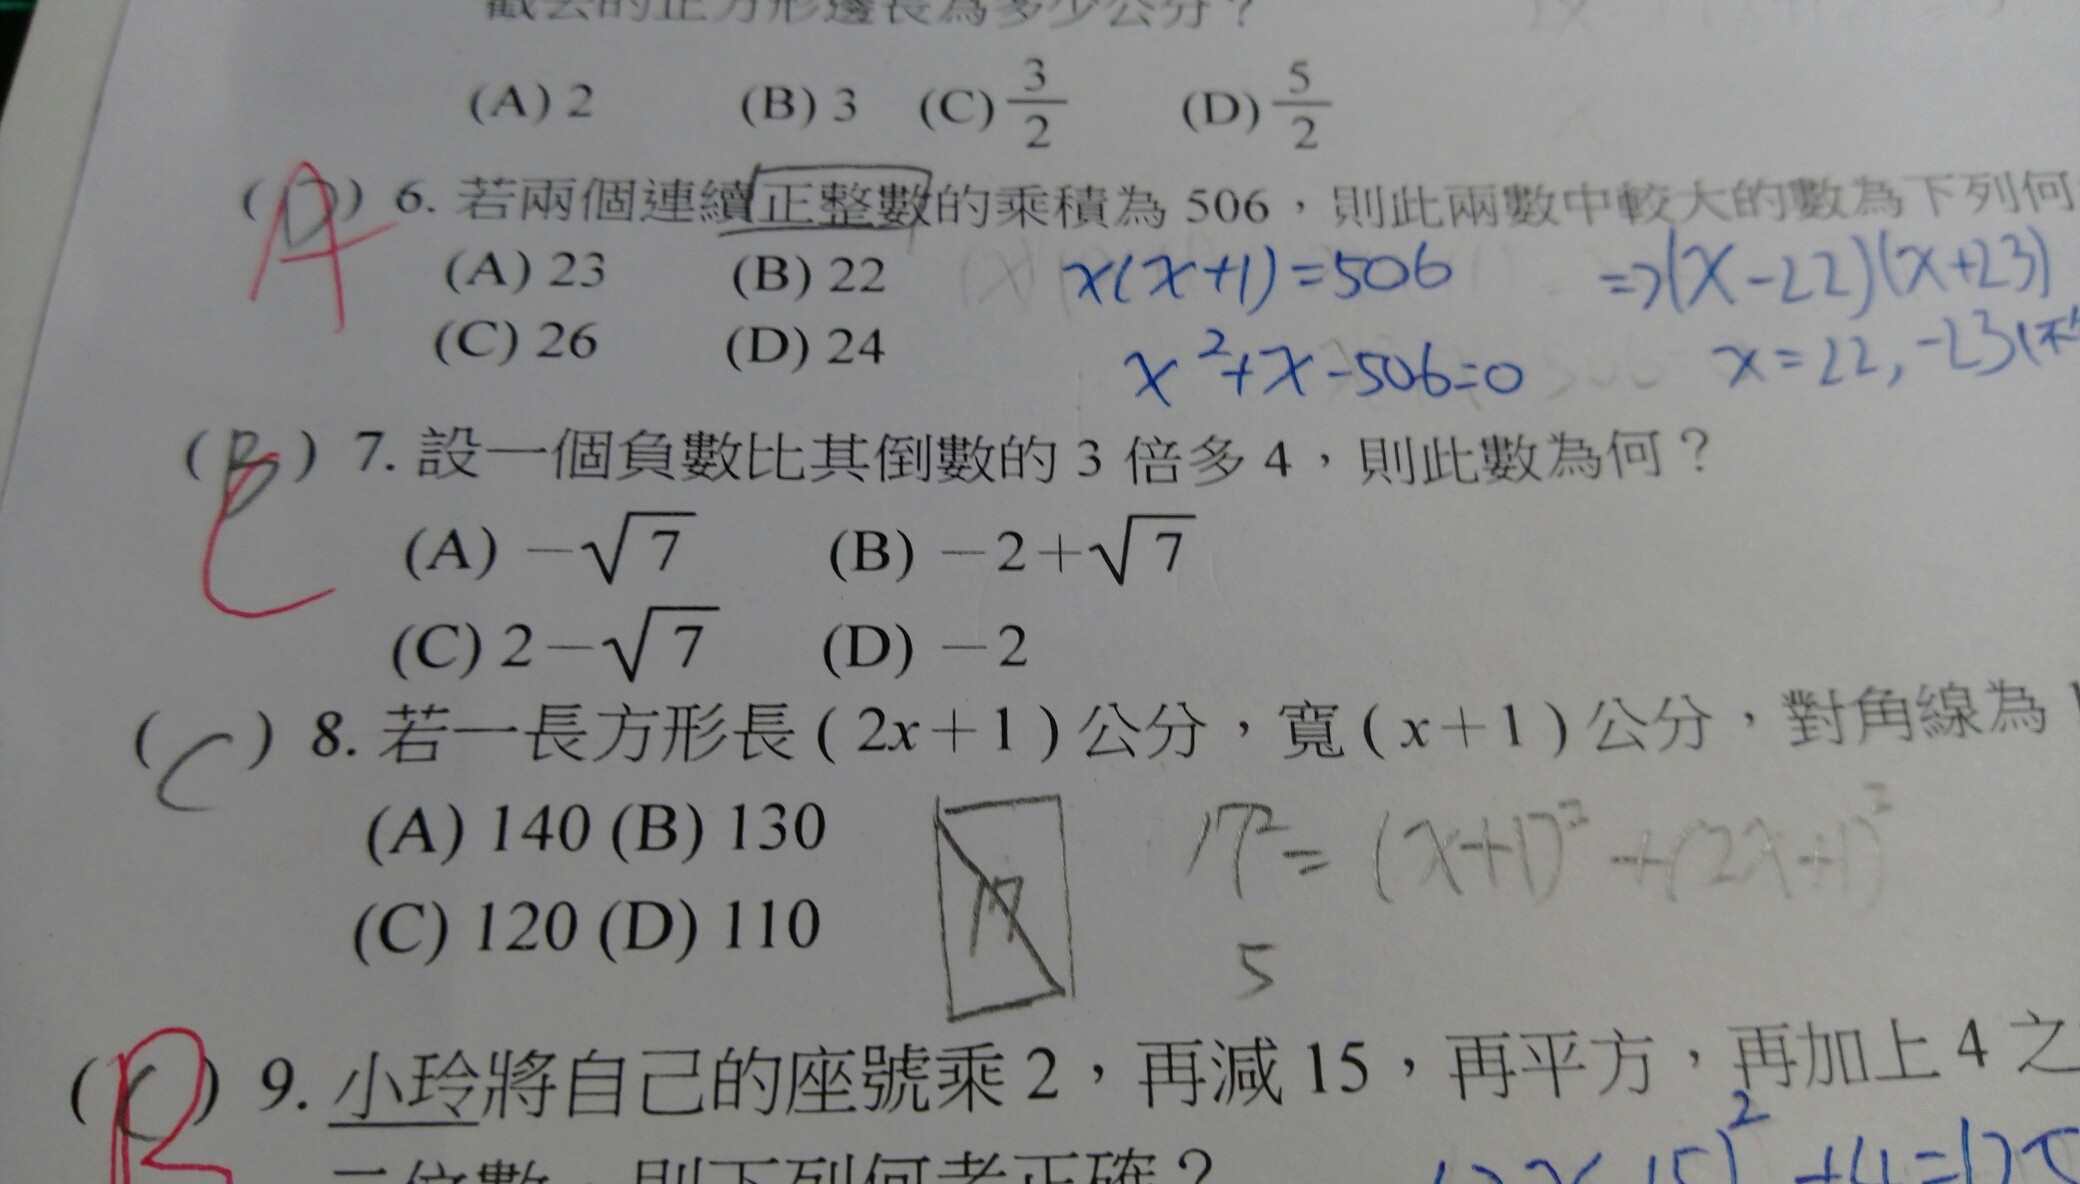 截去的正方形邊長為多少公分？
(A) 2 (B) 3 (C) 3/2 (D) 5/2
(D) A 6. 若兩個連續正整數的乘積為 506，則此兩數中較大的數為下列何
(A) 23 (B) 22 x(x+1)=506 ⇒(x-22)(x+23)
(C) 26 (D) 24 x²+x-506=0 x=22, -23(不
(B) C 7. 設一個負數比其倒數的 3 倍多 4，則此數為何？
(A) －√7 (B) －2＋√7
(C) 2－√7 (D) －2
(C) 8. 若一長方形長 ( 2x＋1 ) 公分，寬 ( x＋1 ) 公分，對角線為 1
(A) 140 (B) 130 17²= (x+1)²+(2x+1)²
(C) 120 (D) 110 17 5
(C) B 9. 小玲將自己的座號乘 2，再減 15，再平方，再加上 4 之
二位數，則下列何者正確？ 15)²+4=125